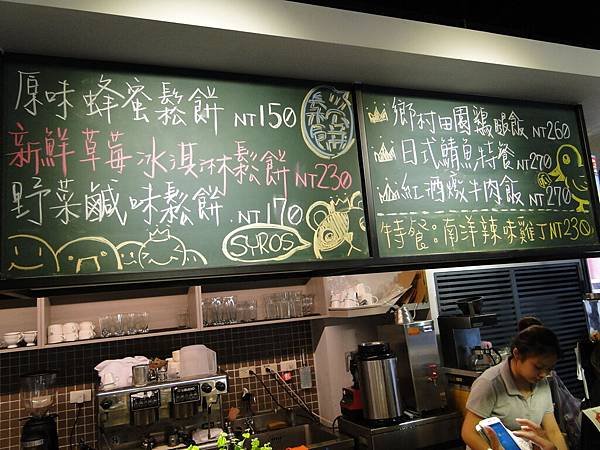 原味蜂蜜鬆餅 NT150
鬆餅
新鮮草莓冰淇淋鬆餅 NT230
野菜鹹味鬆餅 NT170
SYROS
鄉村田園雞腿飯 NT260
日式鯖魚特餐 NT270
紅酒燉牛肉飯 NT270
特餐:南洋辣味雞丁NT230